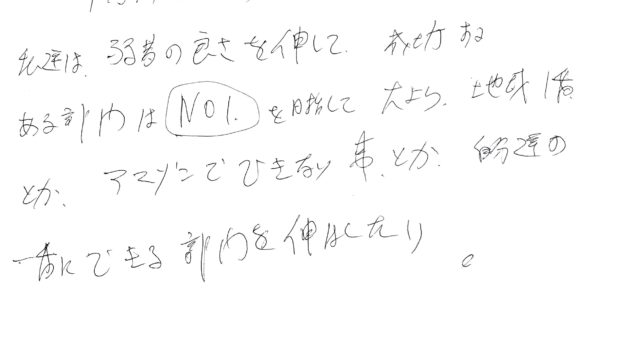 私達は、弱者の良さを伸して、成功する
ある部門は NO1. を目指して 地域1番
とか、アマゾンでできない事、とか、自分達の
一番にできる部門を伸ばしたり